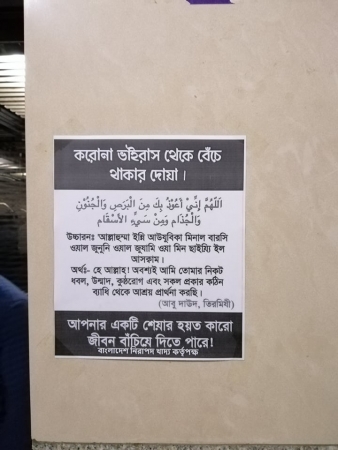 করোনা ভাইরাস থেকে বেঁচে
থাকার দোয়া ।
اَللَّهُمَّ إِنِّيْ أَعُوْذُ بِكَ مِنَ الْبَرَصِ وَالْجُنُوْنِ
وَالْجُذَامِ وَمِنْ سَيِّءِ الْأَسْقَامِ
উচ্চারনঃ আল্লাহুম্মা ইন্নি আউযুবিকা মিনাল বারসি
ওয়াল জুনুনি ওয়াল জুযামি ওয়া মিন ছাইয়্যি ইল
আসক্বাম।
অর্থঃ- হে আল্লাহ! অবশ্যই আমি তোমার নিকট
ধবল, উন্মাদ, কুষ্ঠরোগ এবং সকল প্রকার কঠিন
ব্যাধি থেকে আশ্রয় প্রার্থনা করছি।
(আবু দাউদ, তিরমিযী)
আপনার একটি শেয়ার হয়ত কারো
জীবন বাঁচিয়ে দিতে পারে!
বাংলাদেশ নিরাপদ খাদ্য কর্তৃপক্ষ